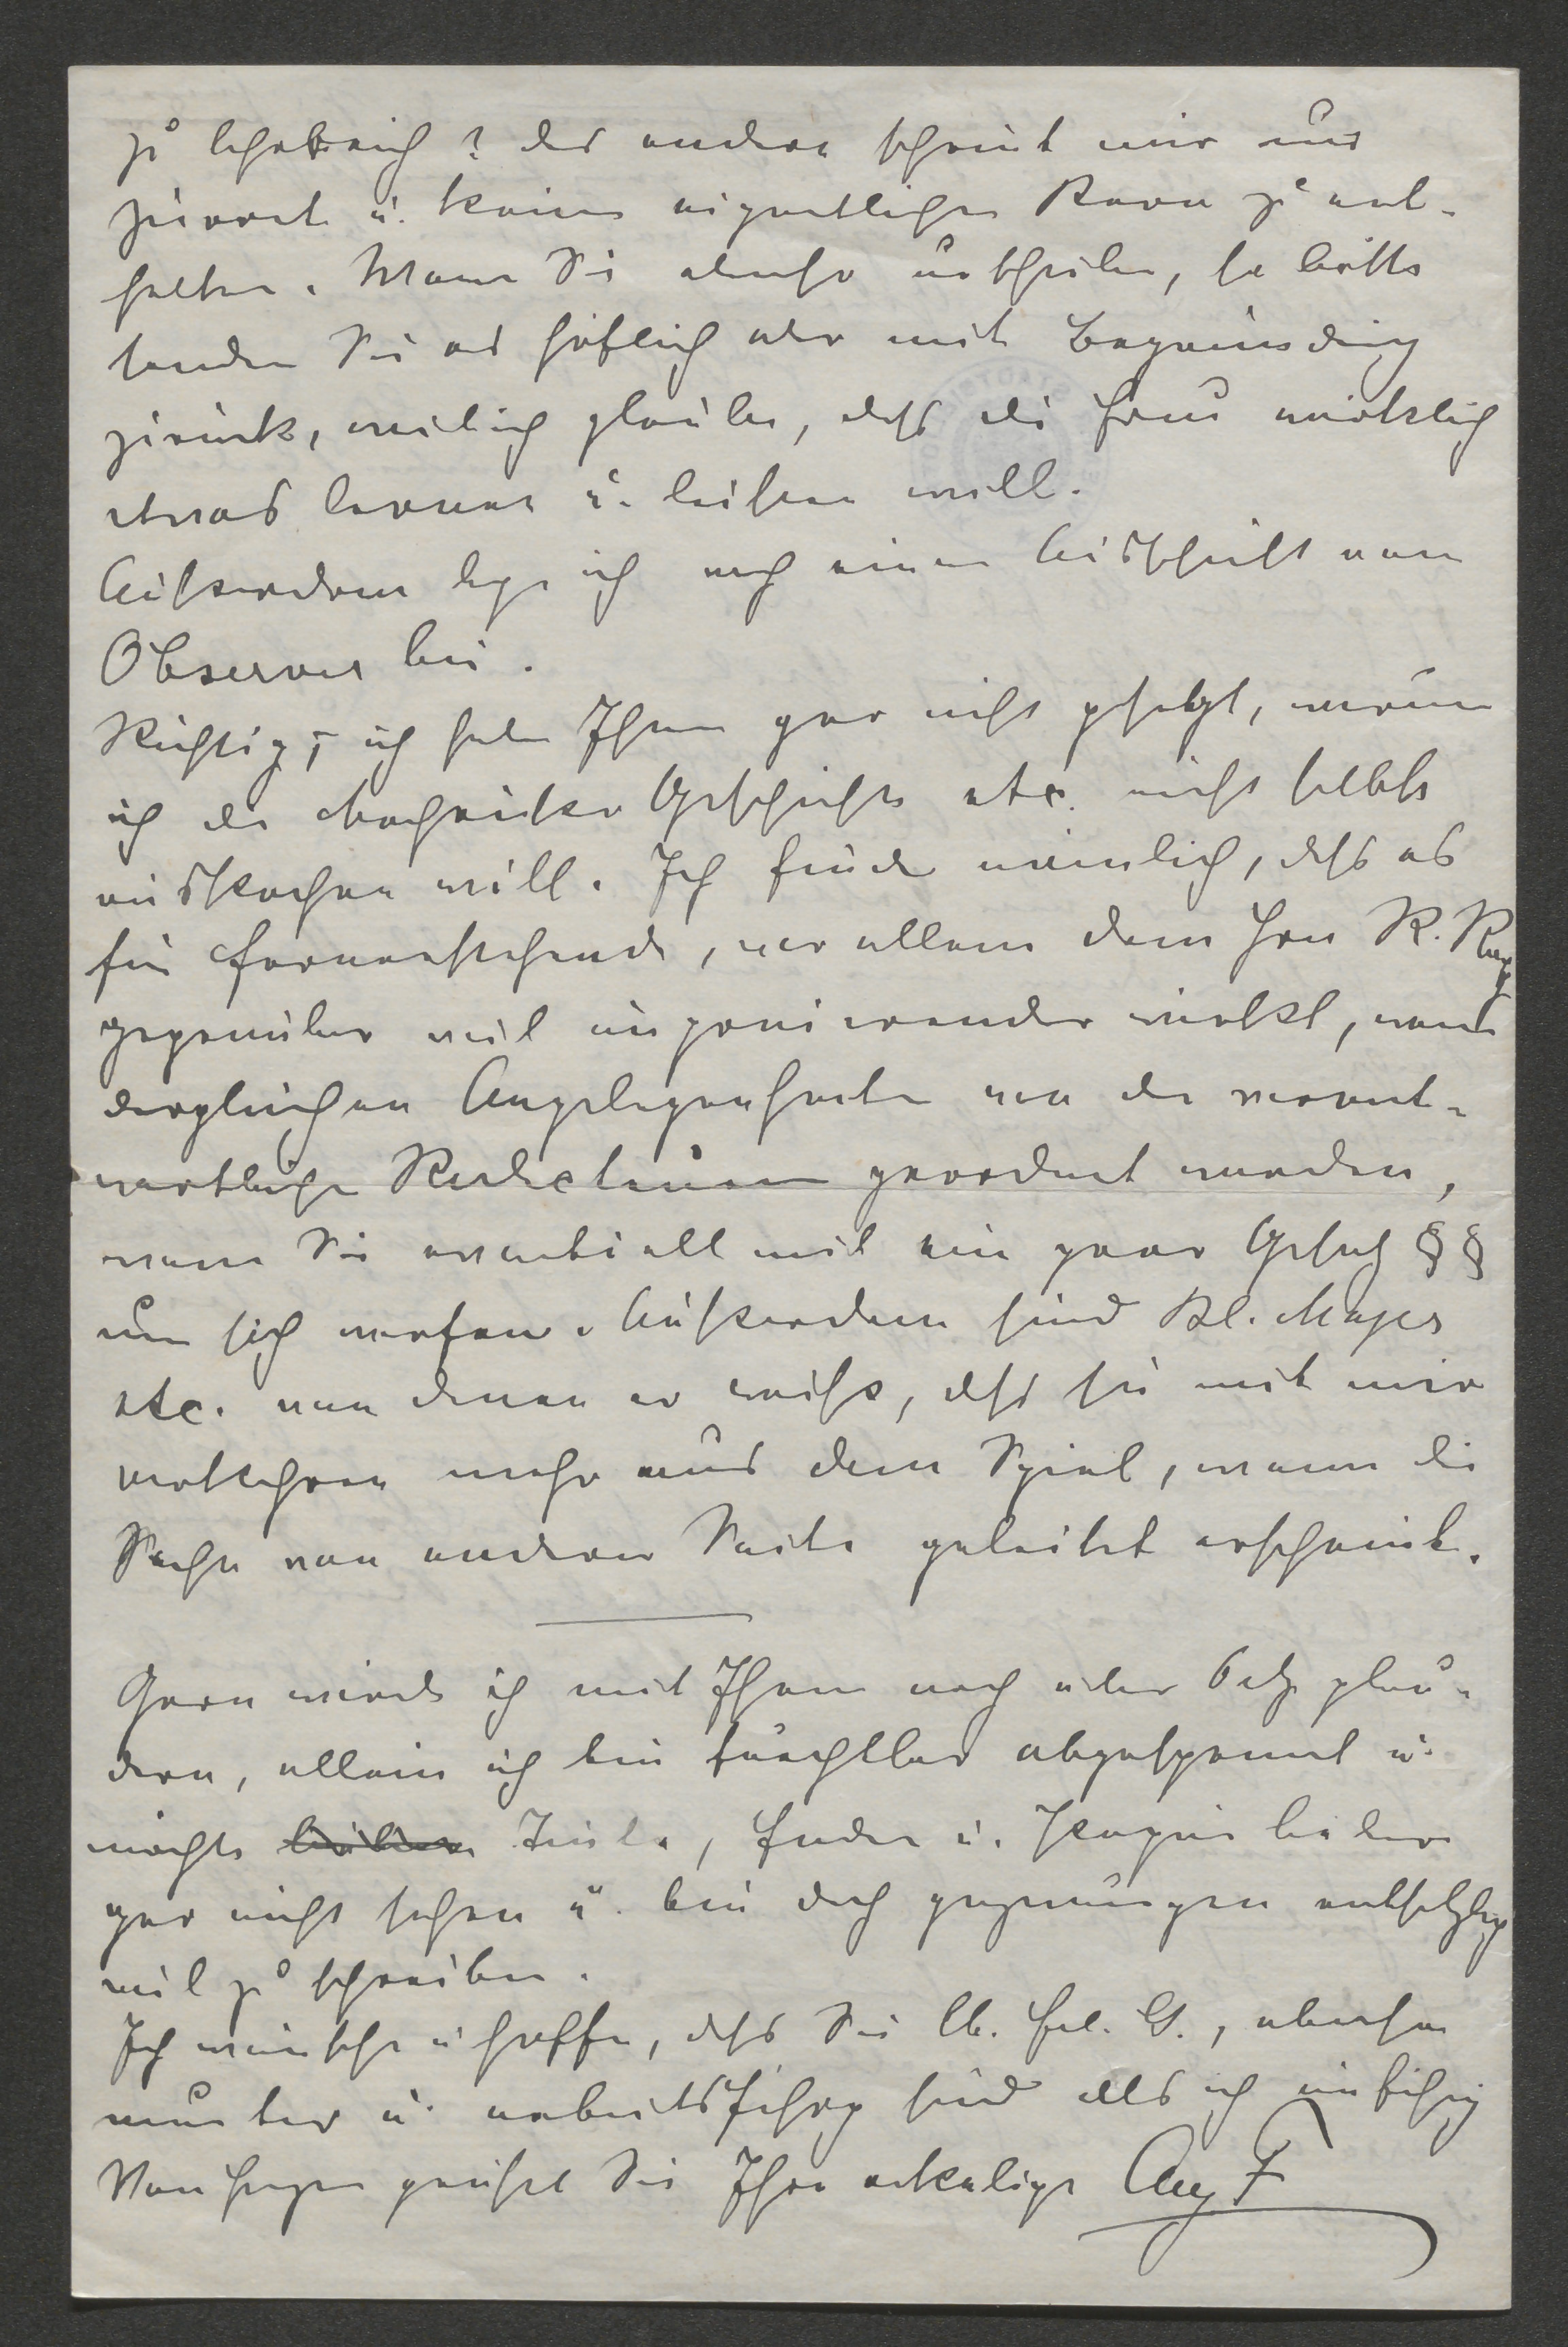 zu lehrreich? das andere scheint mir nur
zuvort u. keine eigentlichen Kern zu ent-
halten. Wenn Sie ebenso urtheilen, so bitte
senden Sie es höflich aber mit Begründung
zurück, weil ich glaube, dass die Frau wirklich
etwas lernen u. leisten will.
Außerdem lege ich noch einen Ausschnitt vom
Observer bei.
Richtig, ich habe Ihnen gar nicht gesagt, warum
ich die Geschichte etc. nicht selbst
auskochen will. Ich finde nämlich, dass es
für Fernerstehende, vor allem dem Hrn R.
gegenüber viel imponierender wirkt, wenn
dergleichen Angelegenheiten von der verant-
wortlichen Redacteurin geordnet werden,
wenn Sie eventuell mit ein paar Gesetz §§
um sich werfen. Außerdem sind Bl. Mayer
etc. von denen er weiß, dass sie mit mir
verkehren mehr aus dem Spiel, wenn die
Sache von anderer Seite geleitet erscheint.
Gern würde ich mit Ihnen noch über plau-
dern, allein ich bin furchtbar abgespannt u.
möchte Tinte, Feder u. Papier lieber
gar nicht sehen u. bin doch gezwungen entsetzlich
viel zu schreiben.
Ich wünsche u hoffe, dass Sie lb. Frl. G., ebenso
munter u. arbeitsfähig sind als ich unfähig
Von Herzen grüßt Sie Ihre Aug F